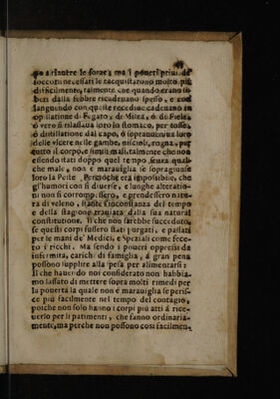 no a rihauere le forze; ma i poueri priui de
soccorsi necessari le racquistarono molto più
difficilmente, talmente che quando erano li-
beri dalla febbre ricadeuano spesso, e così
languendo con queste recidiue cadeuano in
opilatione di Fegato, di Milza, ò de
ò vero si rilassaua loro lo stomaco, per tosse,
ò distillatione dal capo, ò sopraueniua loro
delle vlcere nelle gambe, rogna, per
tutto il corpo, e simili mali, talmente che non
essendo stati doppo quel tempo senza qual-
che male, non è marauiglia se sopragiunse
loro la Peste. Percioche era impossibile, che
gl'humori con sì diuerse, e lunghe alteratio-
ni non si corrompessero, e prendessero natu-
ra di veleno, stante l'inconstanza del tempo
e della stagione trauiata dalla sua natural
constitutione. Il che non sarebbe succeduto,
se questi corpi fussero stati purgati, e passati
per le mani de' Medici, e Speziali come fece-
ro i ricchi. Ma sendo i poueri oppressi da
infermità, carichi di famiglia, à gran pena
possono supplire alla spesa per alimentarsi:
Il che hauendo noi considerato non habbia-
mo lassato di mettere sopra molti rimedi per
la pouertà la quale non è marauiglia se peris-
ce più facilmente nel tempo del contagio,
poiche non solo hanno i corpi più atti à rice-
uerlo per li patimenti, che fanno ordinaria-
mente, ma perche non possono così facilmen-